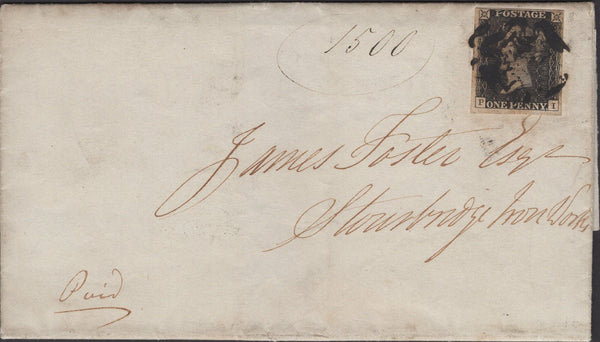 1500
POSTAGE
ONE PENNY
P I
James Foster Esqr
Stourbridge Iron Works
Paid